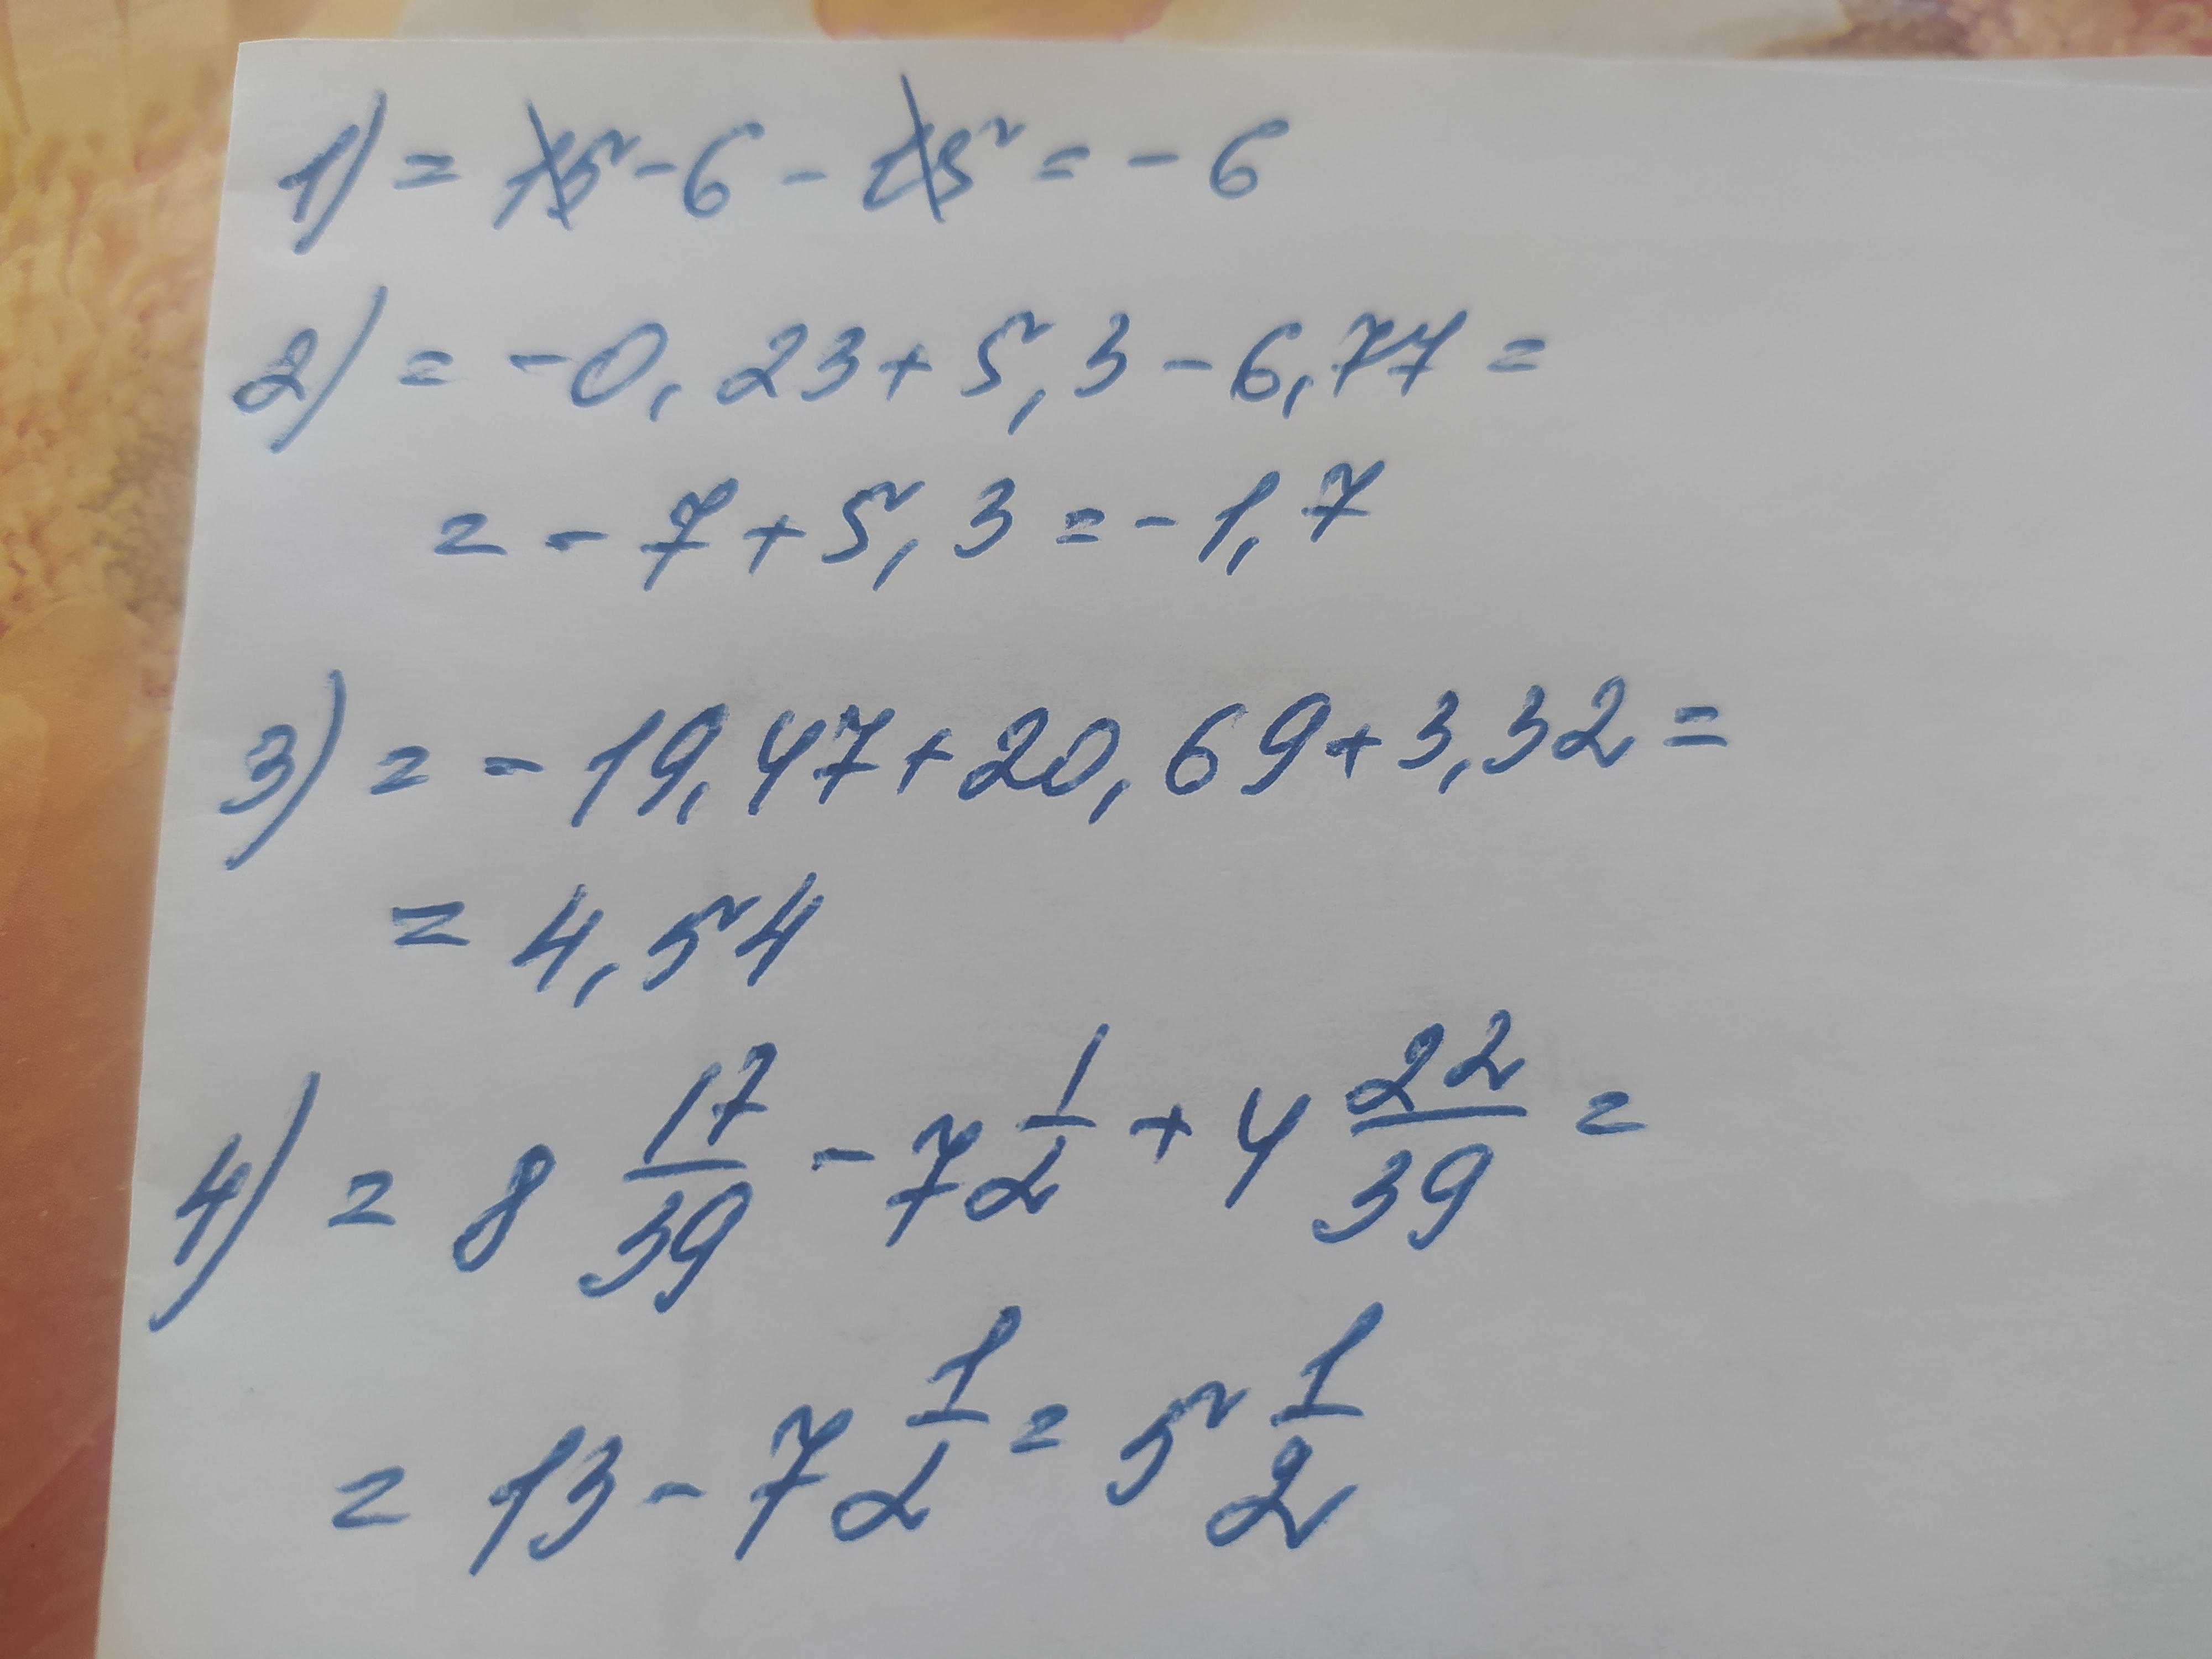 1) = 15 - 6 - 15 = - 6
2) = - 0,23 + 5,3 - 6,77 =
= - 7 + 5,3 = - 1,7
3) = - 19,47 + 20,69 + 3,32 =
= 4,54
4) = 8 17/39 - 7 1/2 + 4 22/39 =
= 13 - 7 1/2 = 5 1/2